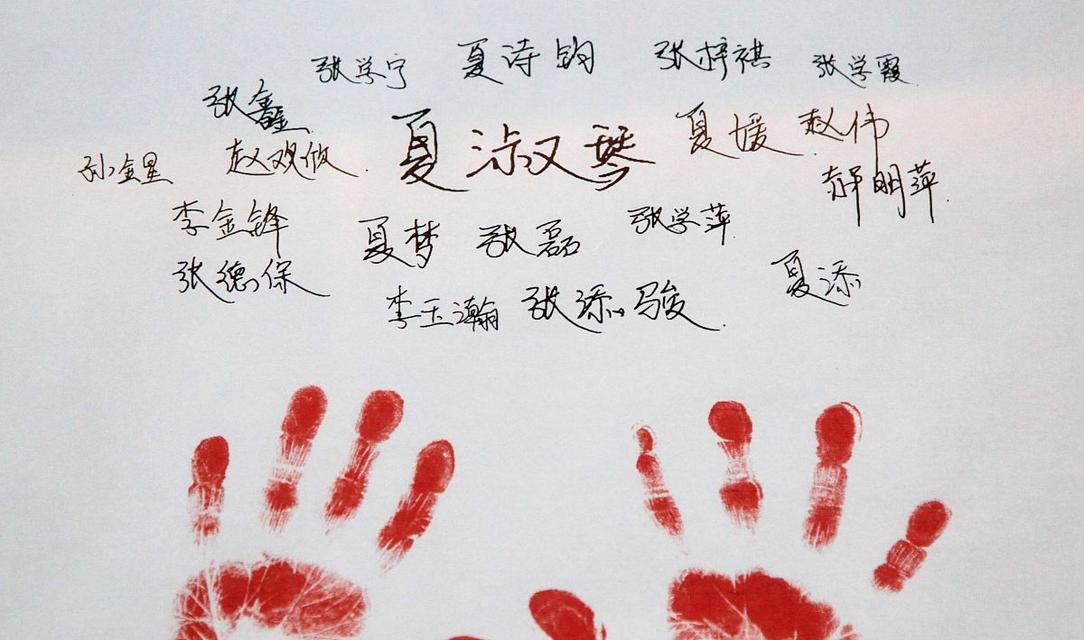 张学宁 夏诗钧 张梓祺 张学霞
张鑫
夏淑琴 夏媛 赵伟
孙金星 赵欢攸
郝明萍
李金锋 夏梦 张磊 张学萍
张德保 夏添
李玉瀚 张添骏